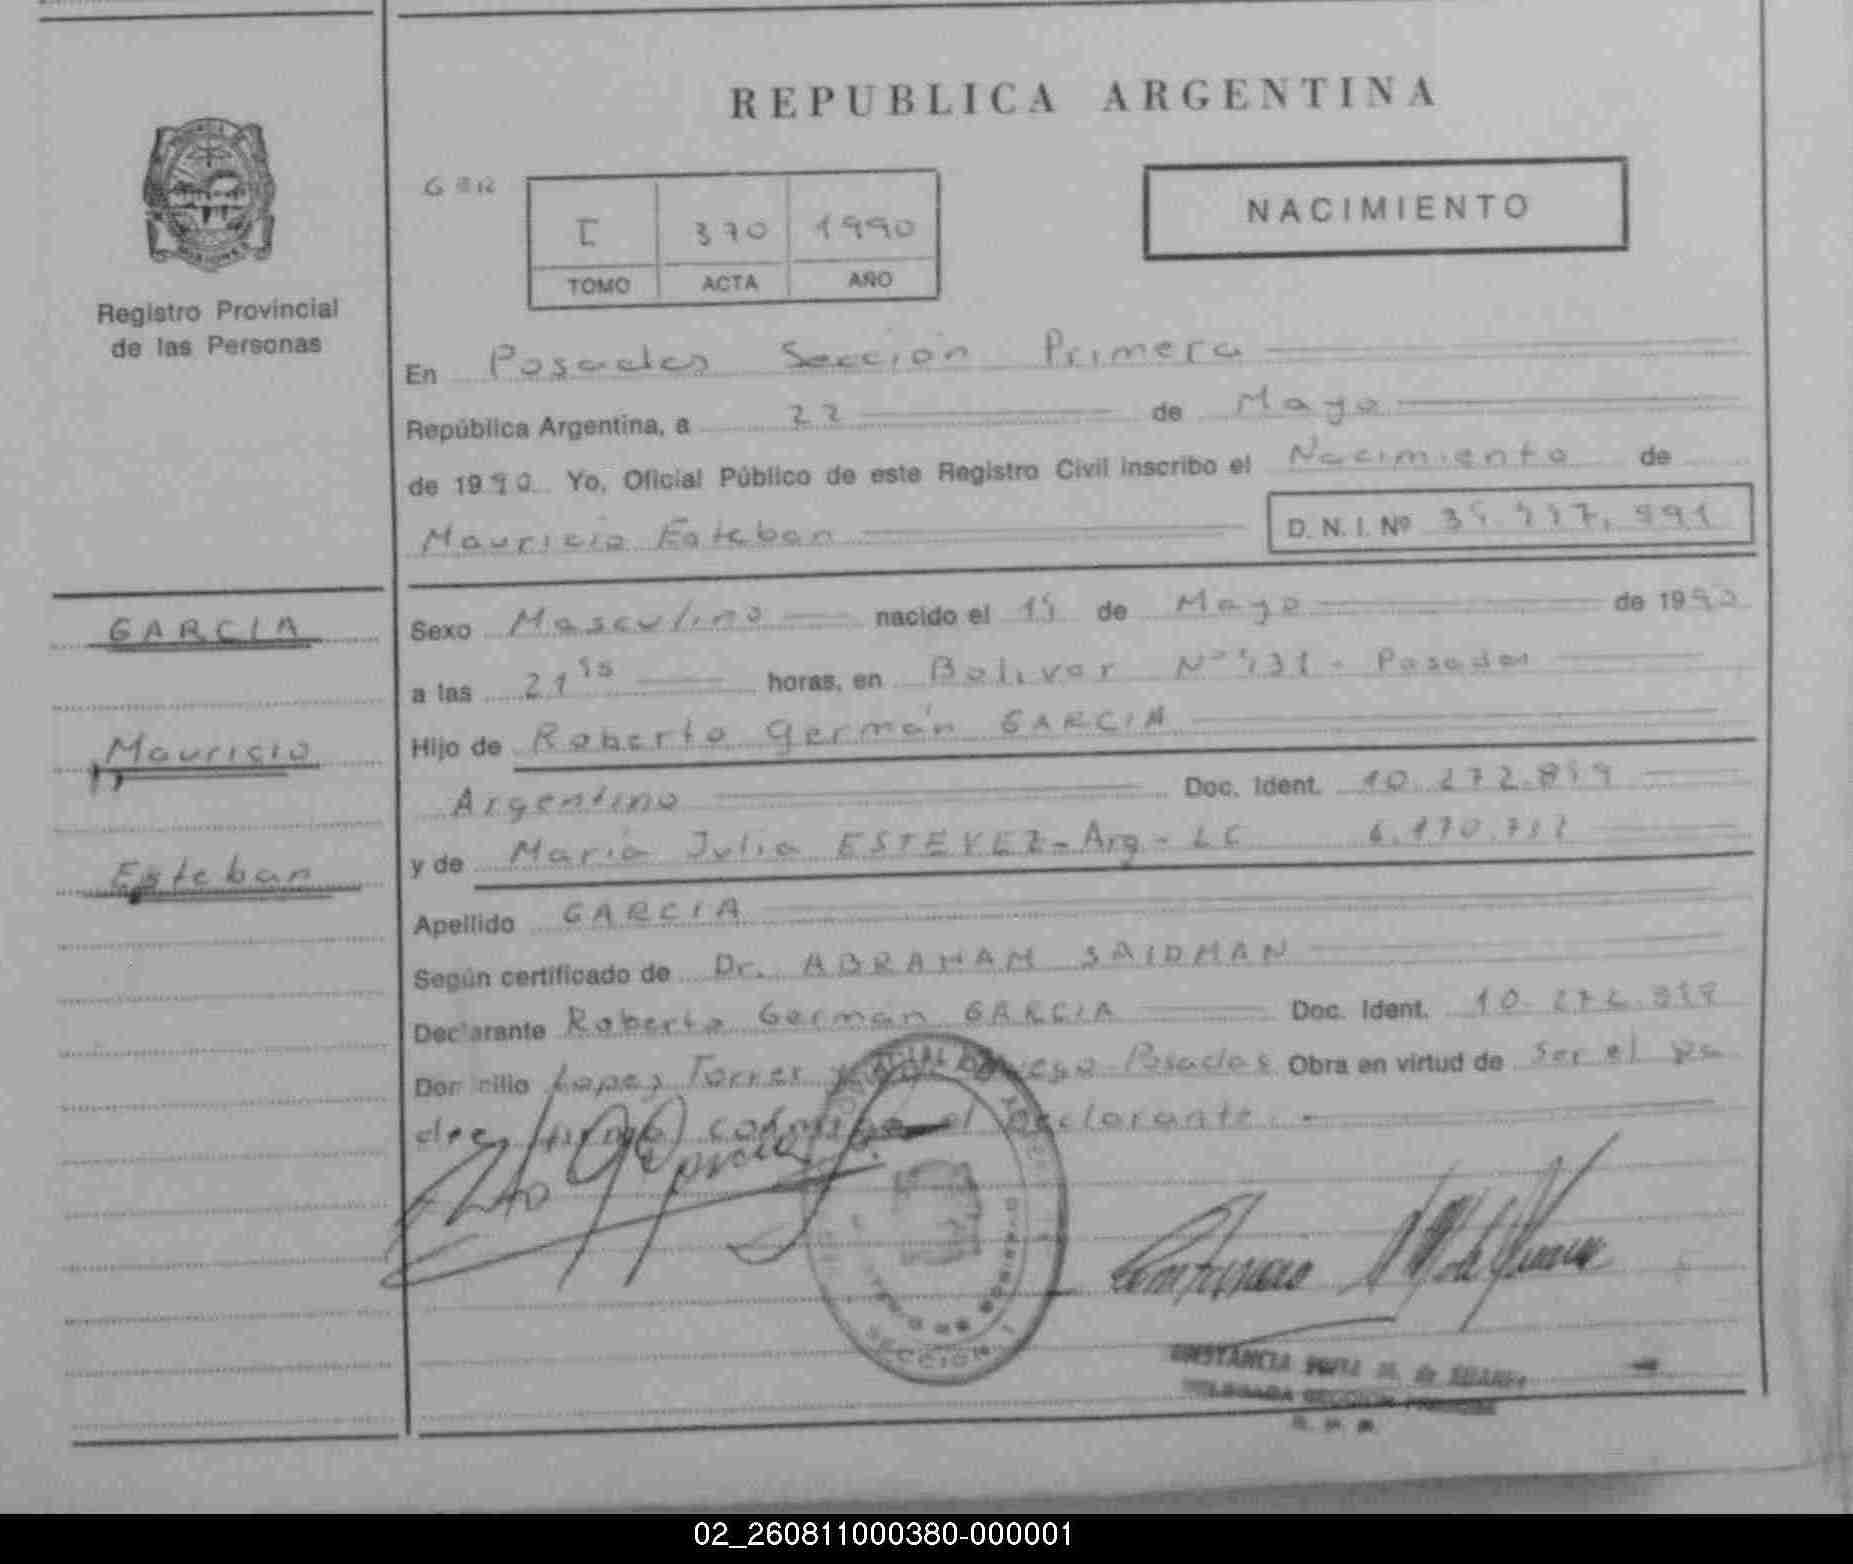 REPUBLICA ARGENTINA
Registro Provincial
de las Personas
I 370 1990
TOMO ACTA AÑO
NACIMIENTO
En Posadas Sección Primera
República Argentina, a 22 de Mayo
de 1990 Yo, Oficial Público de este Registro Civil inscribo el Nacimiento de
Mauricio Esteban
D. N. I. Nº
GARCIA
Mauricio
Esteban
Sexo Masculino nacido el de Mayo de 1990
a las 21 horas, en Bolivar Nº Posadas
Hijo de Roberto Germán GARCIA
Argentino Doc. Ident. 10.272.
y de María Julia ESTEVEZ - Arg - LC
Apellido GARCIA
Según certificado de Dr. ABRAHAM SAIDMAN
Declarante Roberto Germán GARCIA Doc. Ident. 10.272.
Domicilio Lopez Torres y Posadas Obra en virtud de ser el pa
dre, el declarante.
SECCION 1
02_260811000380-000001